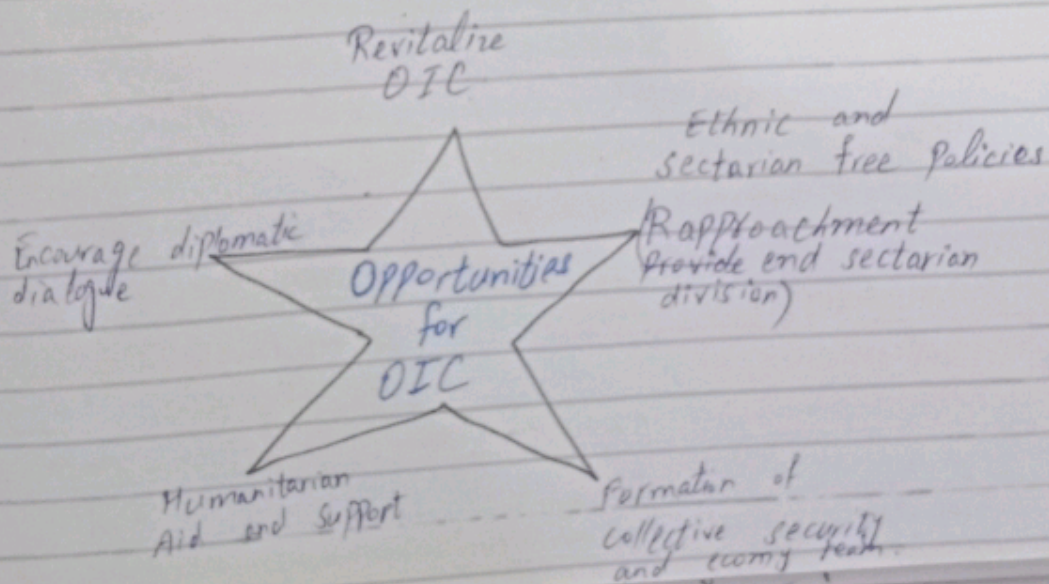 Revitalize
OIC
Ethnic and
sectarian free Policies
(Rapproachment
Provide end sectarian
division)
Encourage diplomatic
dialogue
Opportunities
for
OIC
Humanitarian
Aid and Support
Formation of
collective security
and ecomy team.